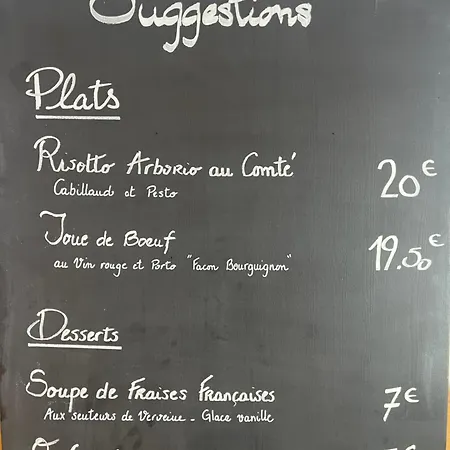 Suggestions
Plats
Risotto Arborio au Comté 20€
Cabillaud et Pesto
Joue de Boeuf 19.50€
au Vin rouge et Porto "Facon Bourguignon"
Desserts
Soupe de Fraises Françaises 7€
Aux senteurs de Verveine - Glace vanille